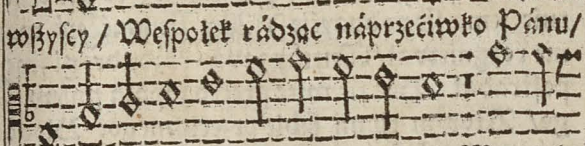 wſzyſcy / Weſpołek rádząc náprzećiwko Pánu/